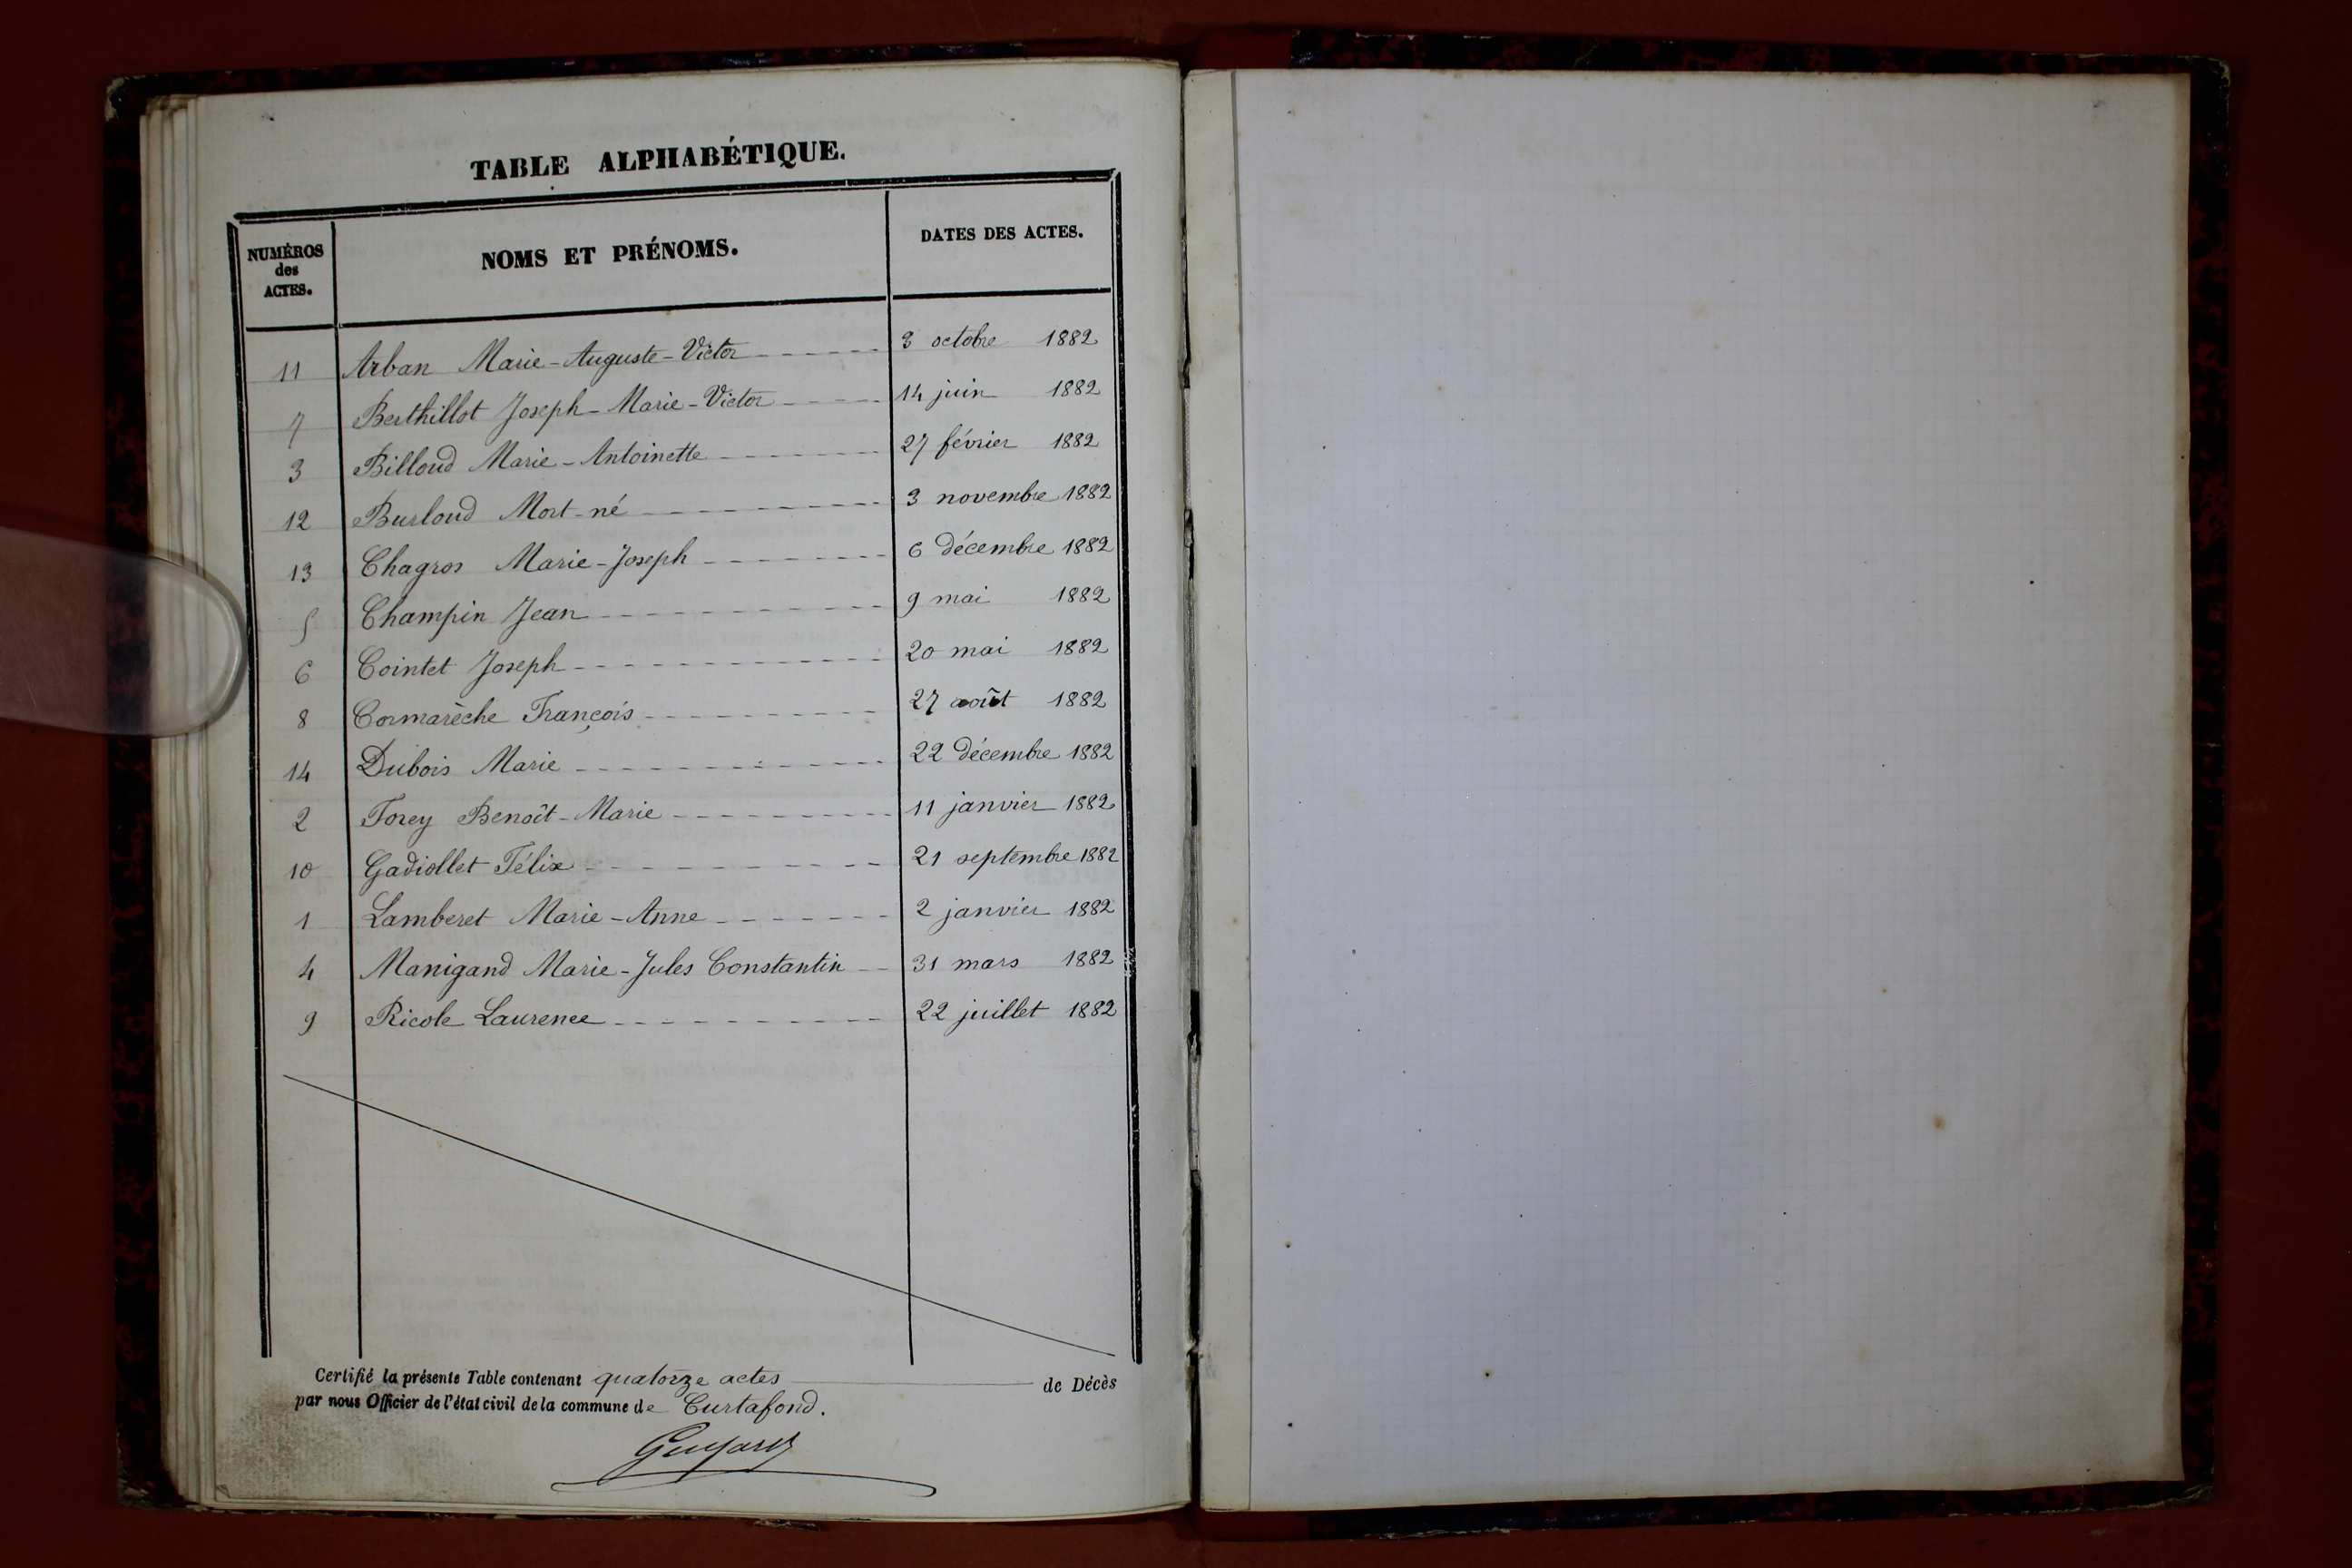 TABLE ALPHABÉTIQUE.
NUMÉROS des ACTES. NOMS ET PRÉNOMS. DATES DES ACTES.
11 Arban Marie-Auguste-Victor 3 octobre 1882
7 Berthillot Joseph-Marie-Victor 14 juin 1882
3 Billoud Marie-Antoinette 27 février 1882
12 Burloud Mort-né 3 novembre 1882
13 Chagros Marie-Joseph 6 décembre 1882
5 Champin Jean 9 mai 1882
6 Cointet Joseph 20 mai 1882
8 Cormarèche François 27 août 1882
14 Dubois Marie 22 décembre 1882
2 Forey Benoît-Marie 11 janvier 1882
10 Gadiollet Félix 21 septembre 1882
1 Lamberet Marie-Anne 2 janvier 1882
4 Manigand Marie-Jules Constantin 31 mars 1882
9 Ricole Laurence 22 juillet 1882
Certifié la présente Table contenant quatorze actes de Décès
par nous Officier de l'état civil de la commune de Curtafond.